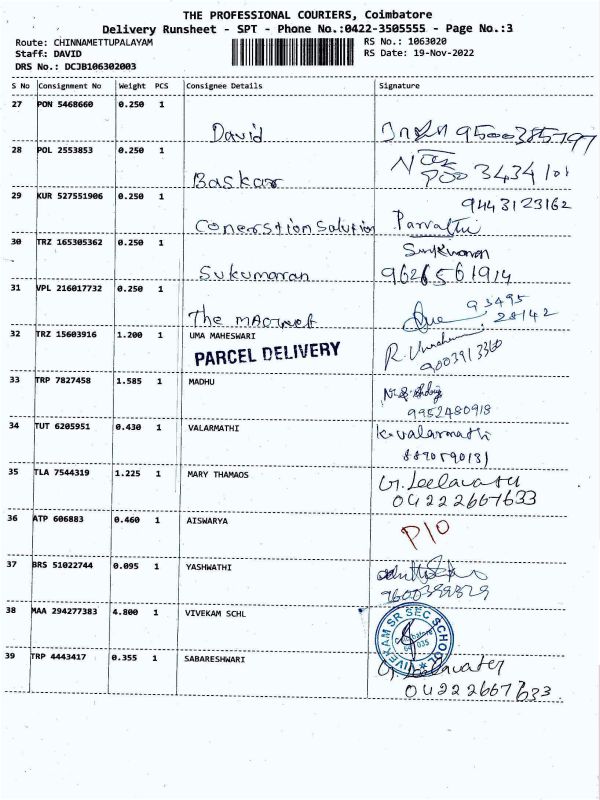 THE PROFESSIONAL COURIERS, Coimbatore
Delivery Runsheet - SPT - Phone No.:0422-3505555 - Page No.:3
Route: CHINNAMETTUPALAYAM RS No.: 1063020
Staff: DAVID RS Date: 19-Nov-2022
DRS No.: DCJB106302003
S No Consignment No Weight PCS Consignee Details Signature
27 PON 5468660 0.250 1
David 9500385797
28 POL 2553853 0.250 1
Baskar
29 KUR 527551906 0.250 1 9443123162
Conerstion Solution Parvathi
30 TRZ 165305362 0.250 1
Sukumaran 9626561914
31 VPL 216017732 0.250 1 93495
The 28142
32 TRZ 15603916 1.200 1 UMA MAHESWARI
PARCEL DELIVERY 9003913360
33 TRP 7827458 1.585 1 MADHU
9952480918
34 TUT 6205951 0.430 1 VALARMATHI K.valarmathi
8890590131
35 TLA 7544319 1.225 1 MARY THAMAOS G.Leelavathi
04222667633
36 ATP 606883 0.460 1 AISWARYA P10
37 BRS 51022744 0.095 1 YASHWATHI
9600399829
38 MAA 294277383 4.800 1 VIVEKAM SCHL
VIVEKAM SR SEC SCHOOL
39 TRP 4443417 0.355 1 SABARESHWARI
04222667633